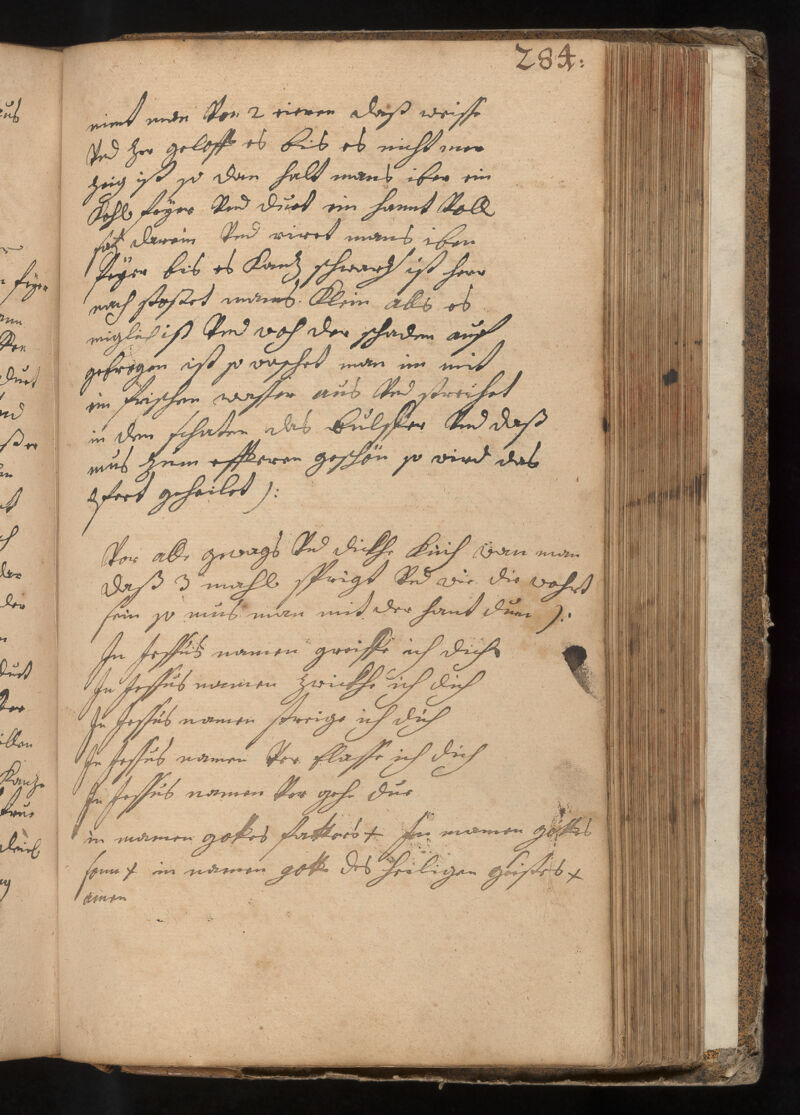 284:
nimt man von 2 eieren daß weisse
Vnd her geloffe es bis es nicht mer
zeig ist so dan halt mans iber ein
Kohl feyer Vnd duet ein hannt Voll
saltz darein Vnd riret mans iben
feyer bis es Kantz schwartz ist herr
nach stosset mans Klein alls es
miglich ist Vnd woh der schaden auff
gebrogen ist so waschet man im mit
ein frischen wasser aus Vnd streihet
in den schaten das bulffer Vnd daß
mus zum effteren geschen so wird das
pfert geheilet ):
Vor alle gewags Vnd dickhe Knih wan man
daß 3 mahl sprigt Vnd wie die wohrt
sein so mus man mit der hant duen ):
In Jessus namen greiffe ich dich
In Jessus namen zwickhe ich dich
In Jessus namen streige ich dich
In Jessus namen Ver lasse ich dich
In Jessus namen Ver gehe du
in namen gottes fatters + In namen gottes
sonn + in namen gott des heiligen geistes +
amen